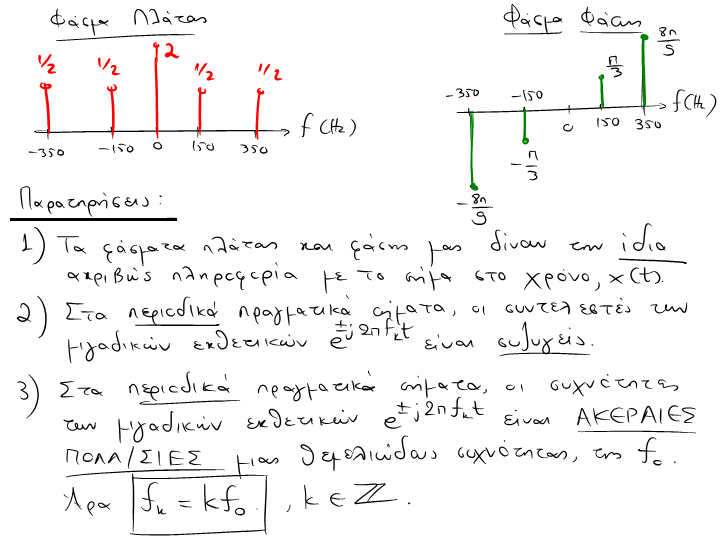 Φάσμα Πλάτους
Φάσμα Φάσης
1/2 1/2 2 1/2 1/2
-350 -150 0 150 350 f(Hz)
8π/9
π/3
-350 -150 0 150 350 f(Hz)
-π/3
-8π/9
Παρατηρήσεις:
1) Τα φάσματα πλάτους και φάσης μας δίνουν την ίδια
ακριβώς πληροφορία με το σήμα στο χρόνο, x(t).
2) Στα περιοδικά πραγματικά σήματα, οι συντελεστές των
μιγαδικών εκθετικών e^{±j2πf_k t} είναι συζυγείς.
3) Στα περιοδικά πραγματικά σήματα, οι συχνότητες
των μιγαδικών εκθετικών e^{±j2πf_k t} είναι ΑΚΕΡΑΙΕΣ
ΠΟΛΛ/ΣΙΕΣ μιας θεμελιώδους συχνότητας, της f_0.
Άρα f_k = kf_0, k ∈ ℤ.